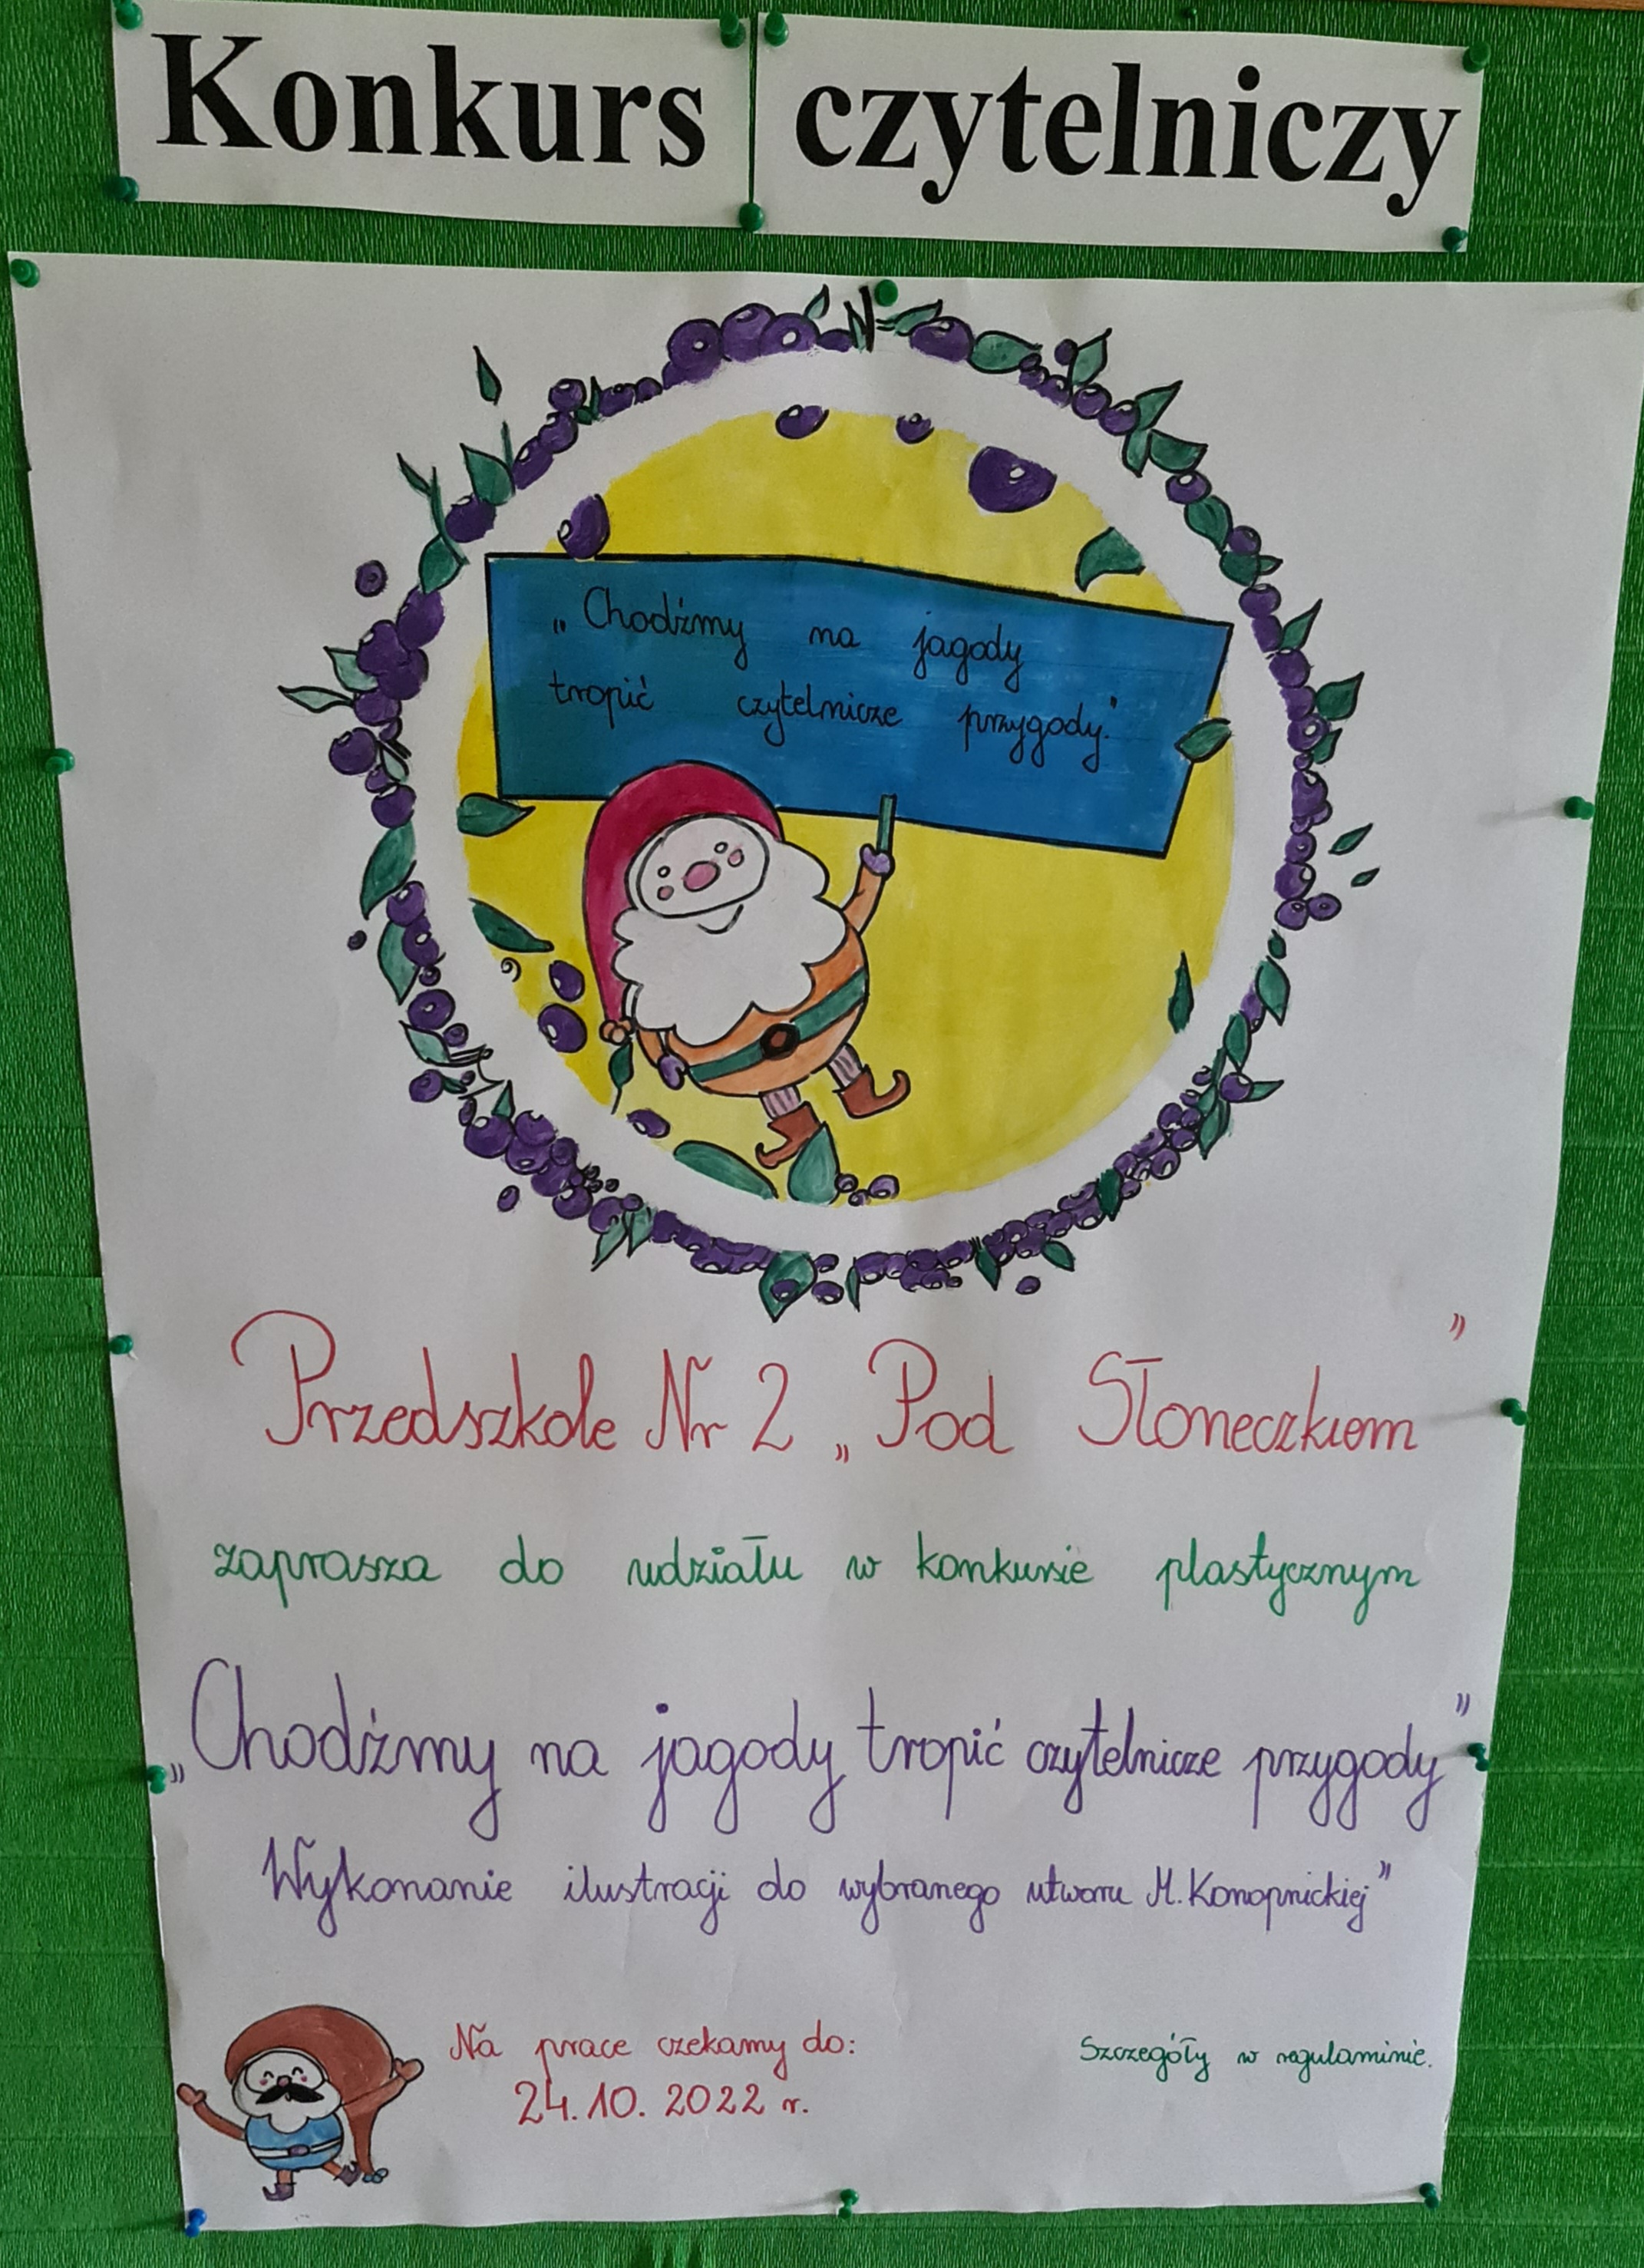 Konkurs czytelniczy
„Chodźmy na jagody
tropić czytelnicze przygody."
Przedszkole Nr 2 „Pod Słoneczkiem"
zaprasza do udziału w konkursie plastycznym
„Chodźmy na jagody tropić czytelnicze przygody"
Wykonanie ilustracji do wybranego utworu M. Konopnickiej"
Na prace czekamy do:
24.10.2022 r.
Szczegóły w regulaminie.